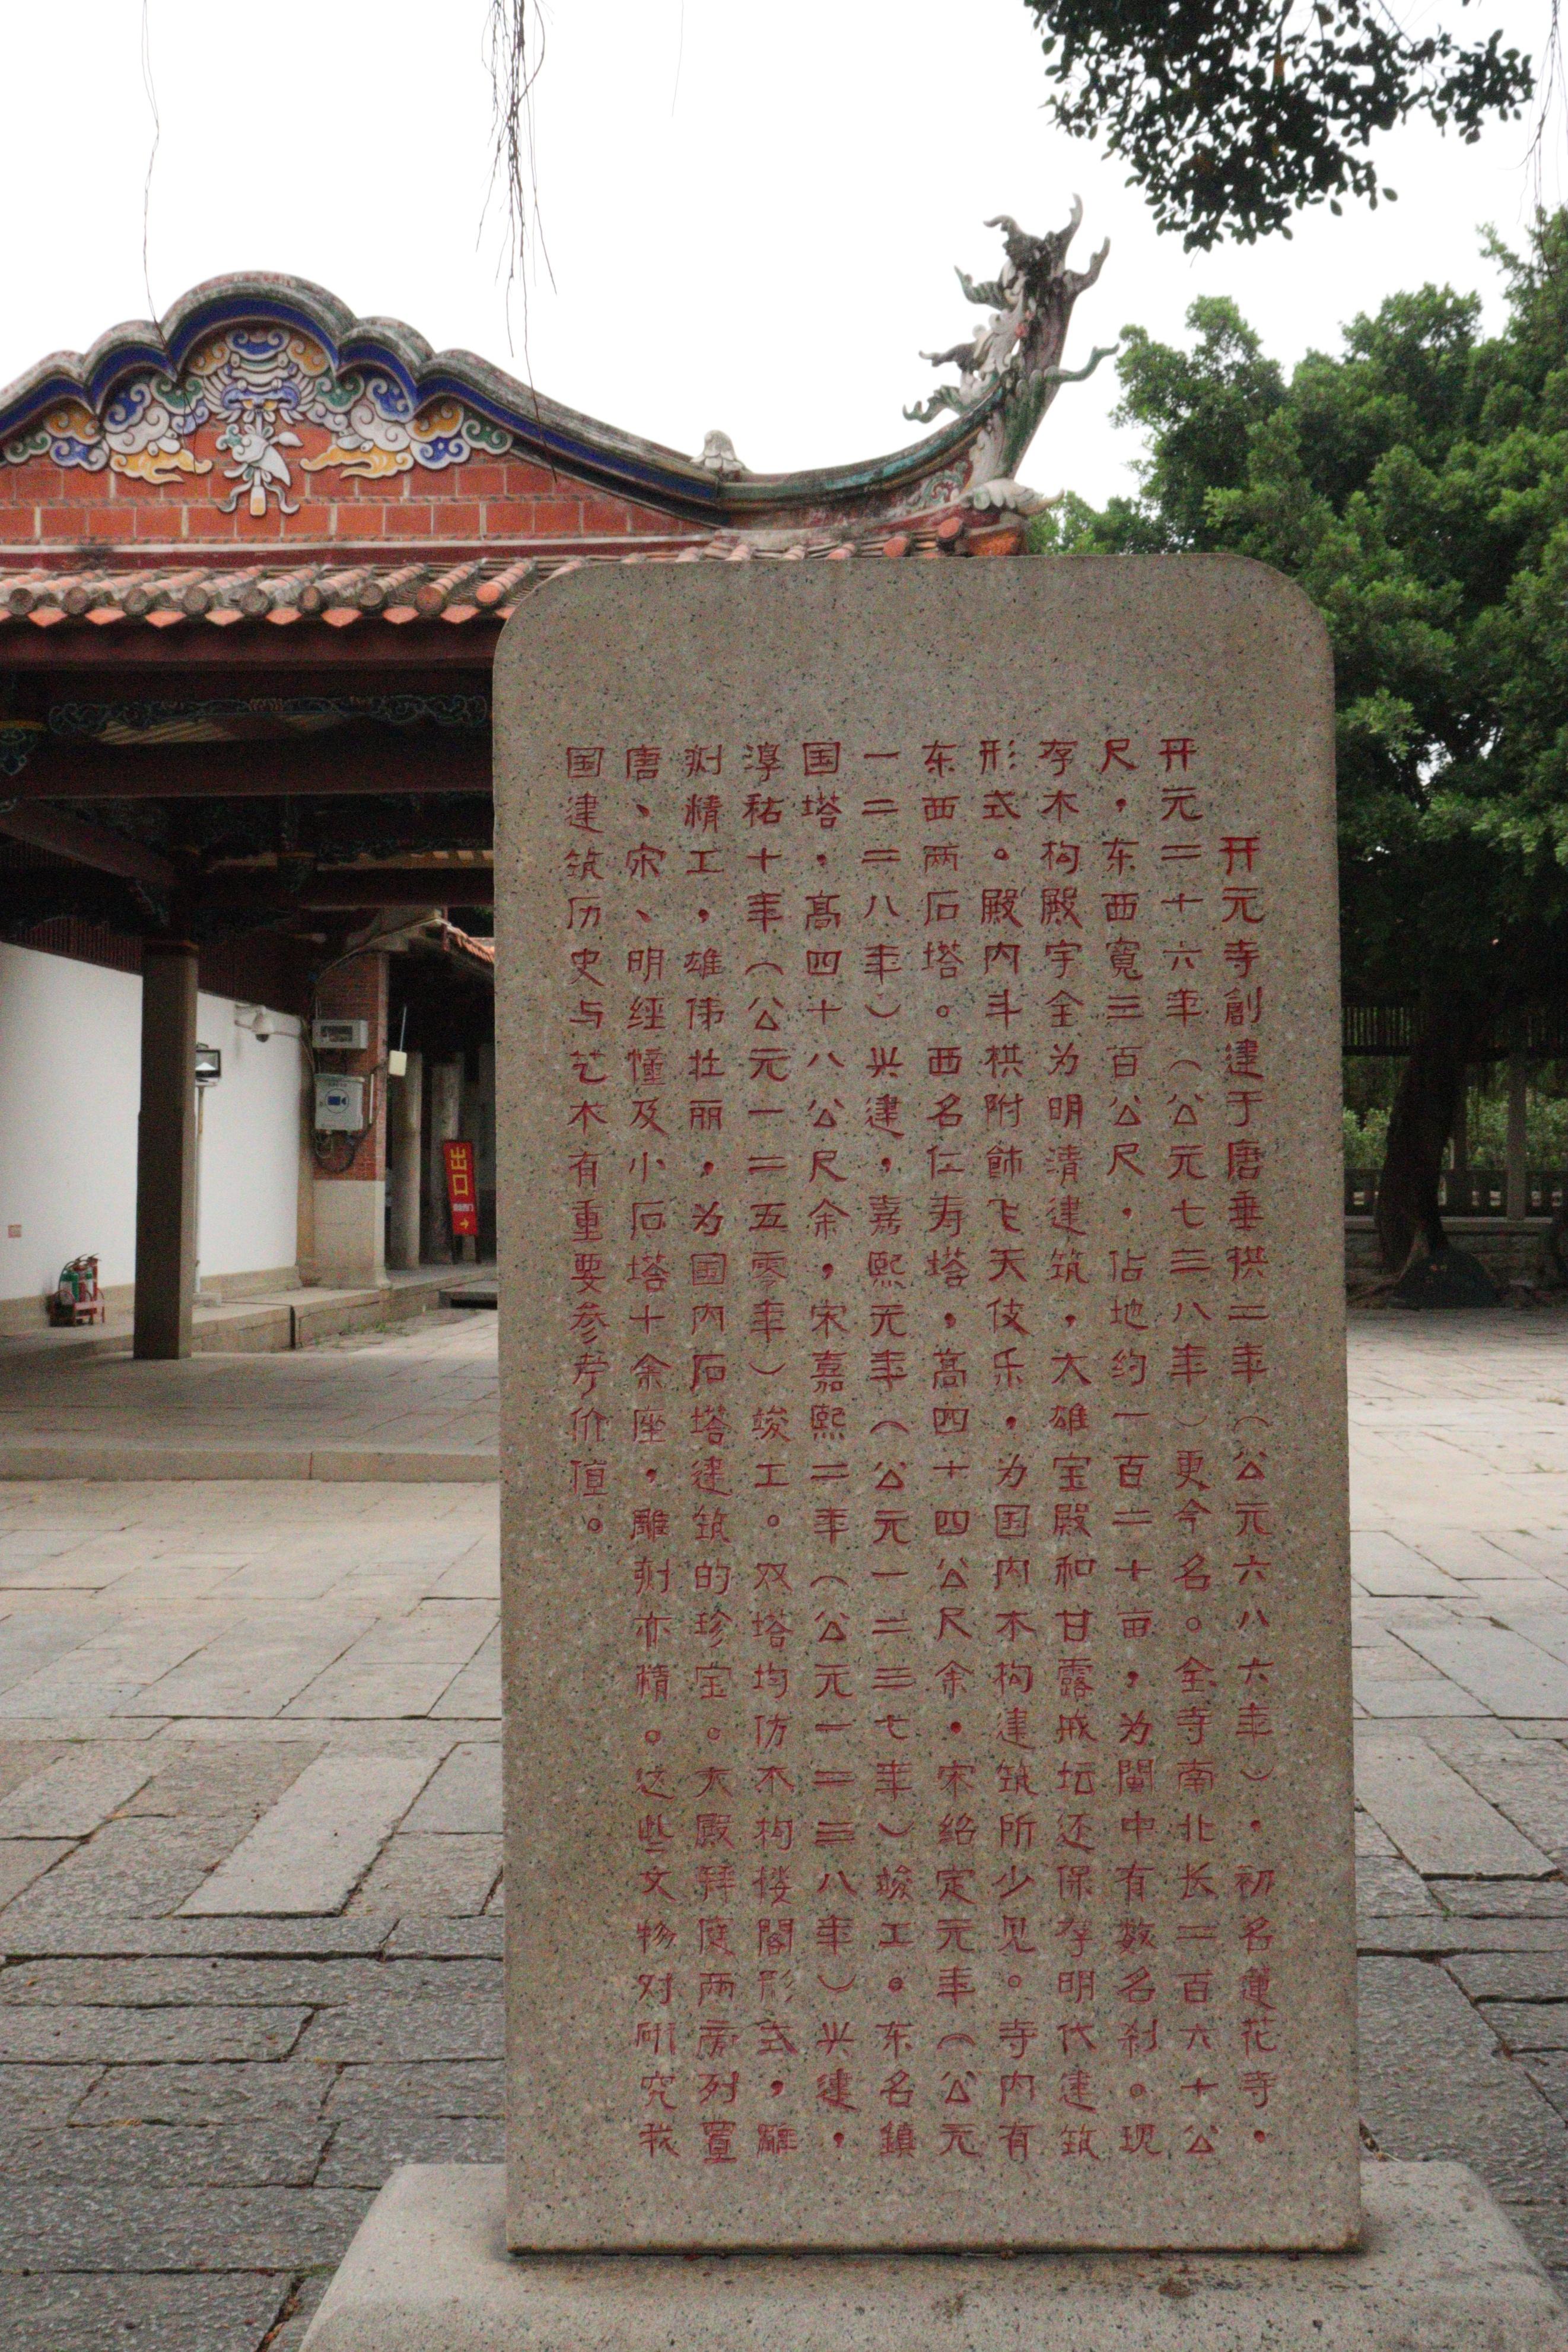 开元寺創建于唐垂拱二年（公元六八六年），初名蓮花寺，
开元二十六年（公元七三八年）更今名。全寺南北长二百六十公
尺，东西寬三百公尺，佔地约一百二十亩，为閩中有数名刹。现
存木构殿宇全为明清建筑，大雄宝殿和甘露戒坛还保存明代建筑
形式。殿内斗栱附飾飞天伎乐，为国内木构建筑所少见。寺内有
东西两石塔。西名仁寿塔，高四十四公尺余，宋绍定元年（公元
一二二八年）兴建，嘉熙元年（公元一二三七年）竣工。东名鎮
国塔，高四十八公尺余，宋嘉熙二年（公元一二三八年）兴建，
淳祐十年（公元一二五零年）竣工。双塔均仿木构楼閣形式，雕
刻精工，雄伟壮丽，为国内石塔建筑的珍宝。大殿拜庭两旁列置
唐、宋、明经幢及小石塔十余座，雕刻亦精。这些文物对研究我
国建筑历史与艺术有重要参考价值。
出口